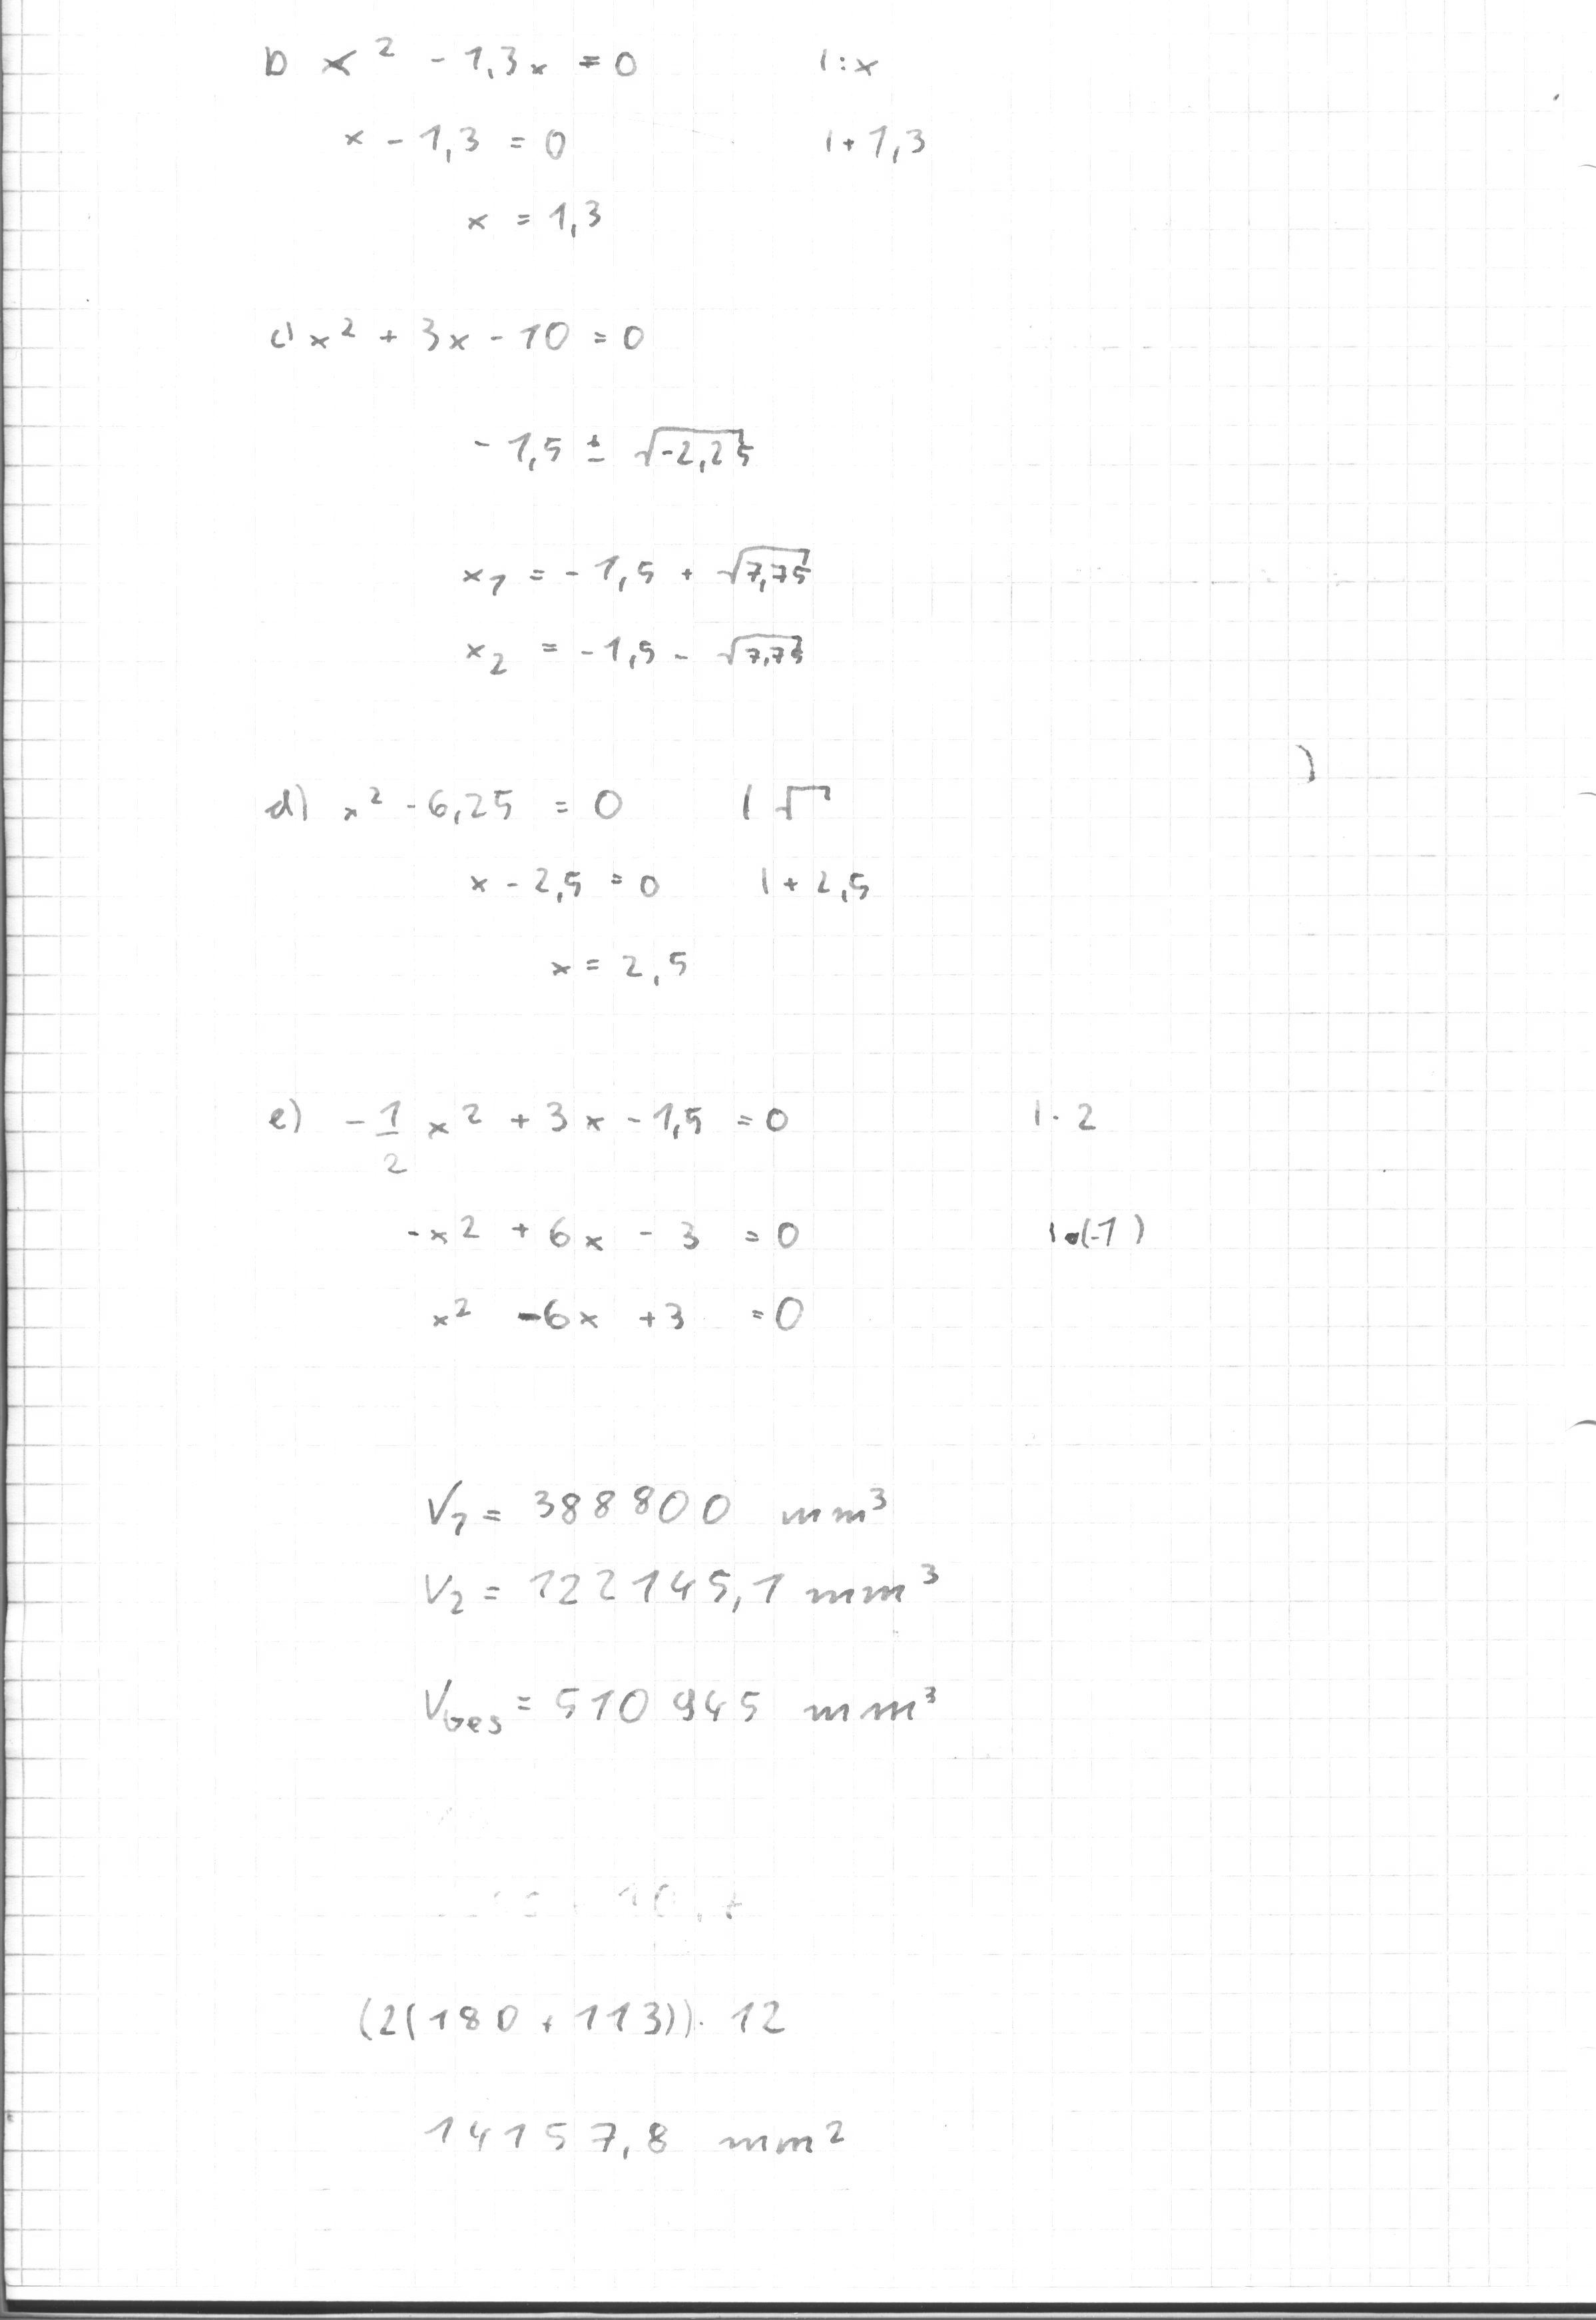 b x² - 1,3x = 0 |:x
x - 1,3 = 0 |+ 1,3
x = 1,3
c) x² + 3x - 10 = 0
- 1,5 ± √-2,25
x₁ = - 1,5 + √7,75
x₂ = - 1,5 - √7,75
d) x² - 6,25 = 0 | √
x - 2,5 = 0 | + 2,5
x = 2,5
e) - 1/2 x² + 3x - 1,5 = 0 | · 2
-x² + 6x - 3 = 0 | ·(-1)
x² - 6x + 3 = 0
V₁ = 388800 mm³
V₂ = 122145,1 mm³
VGes = 510 945 mm³
(2(180 + 113)) · 12
14157,8 mm²